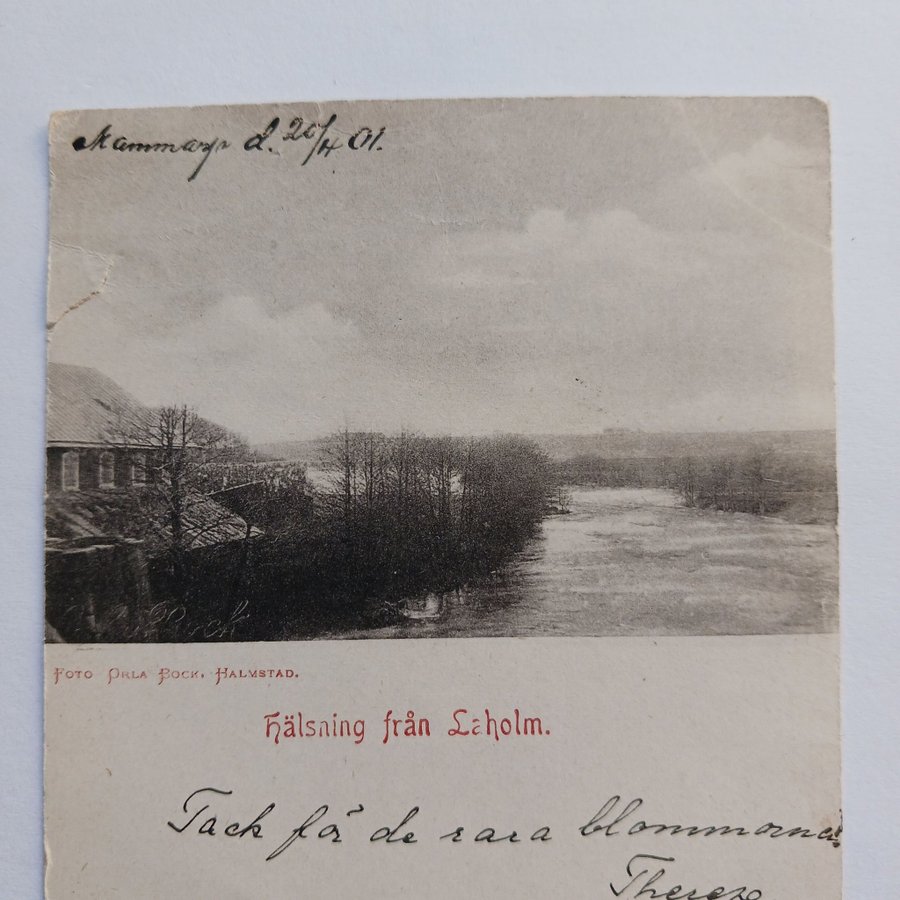 Mammarp d. 25/4 01.
Bock
FOTO ORLA BOCK. HALMSTAD.
Hälsning från Laholm.
Tack för de rara blommorna!
Therese